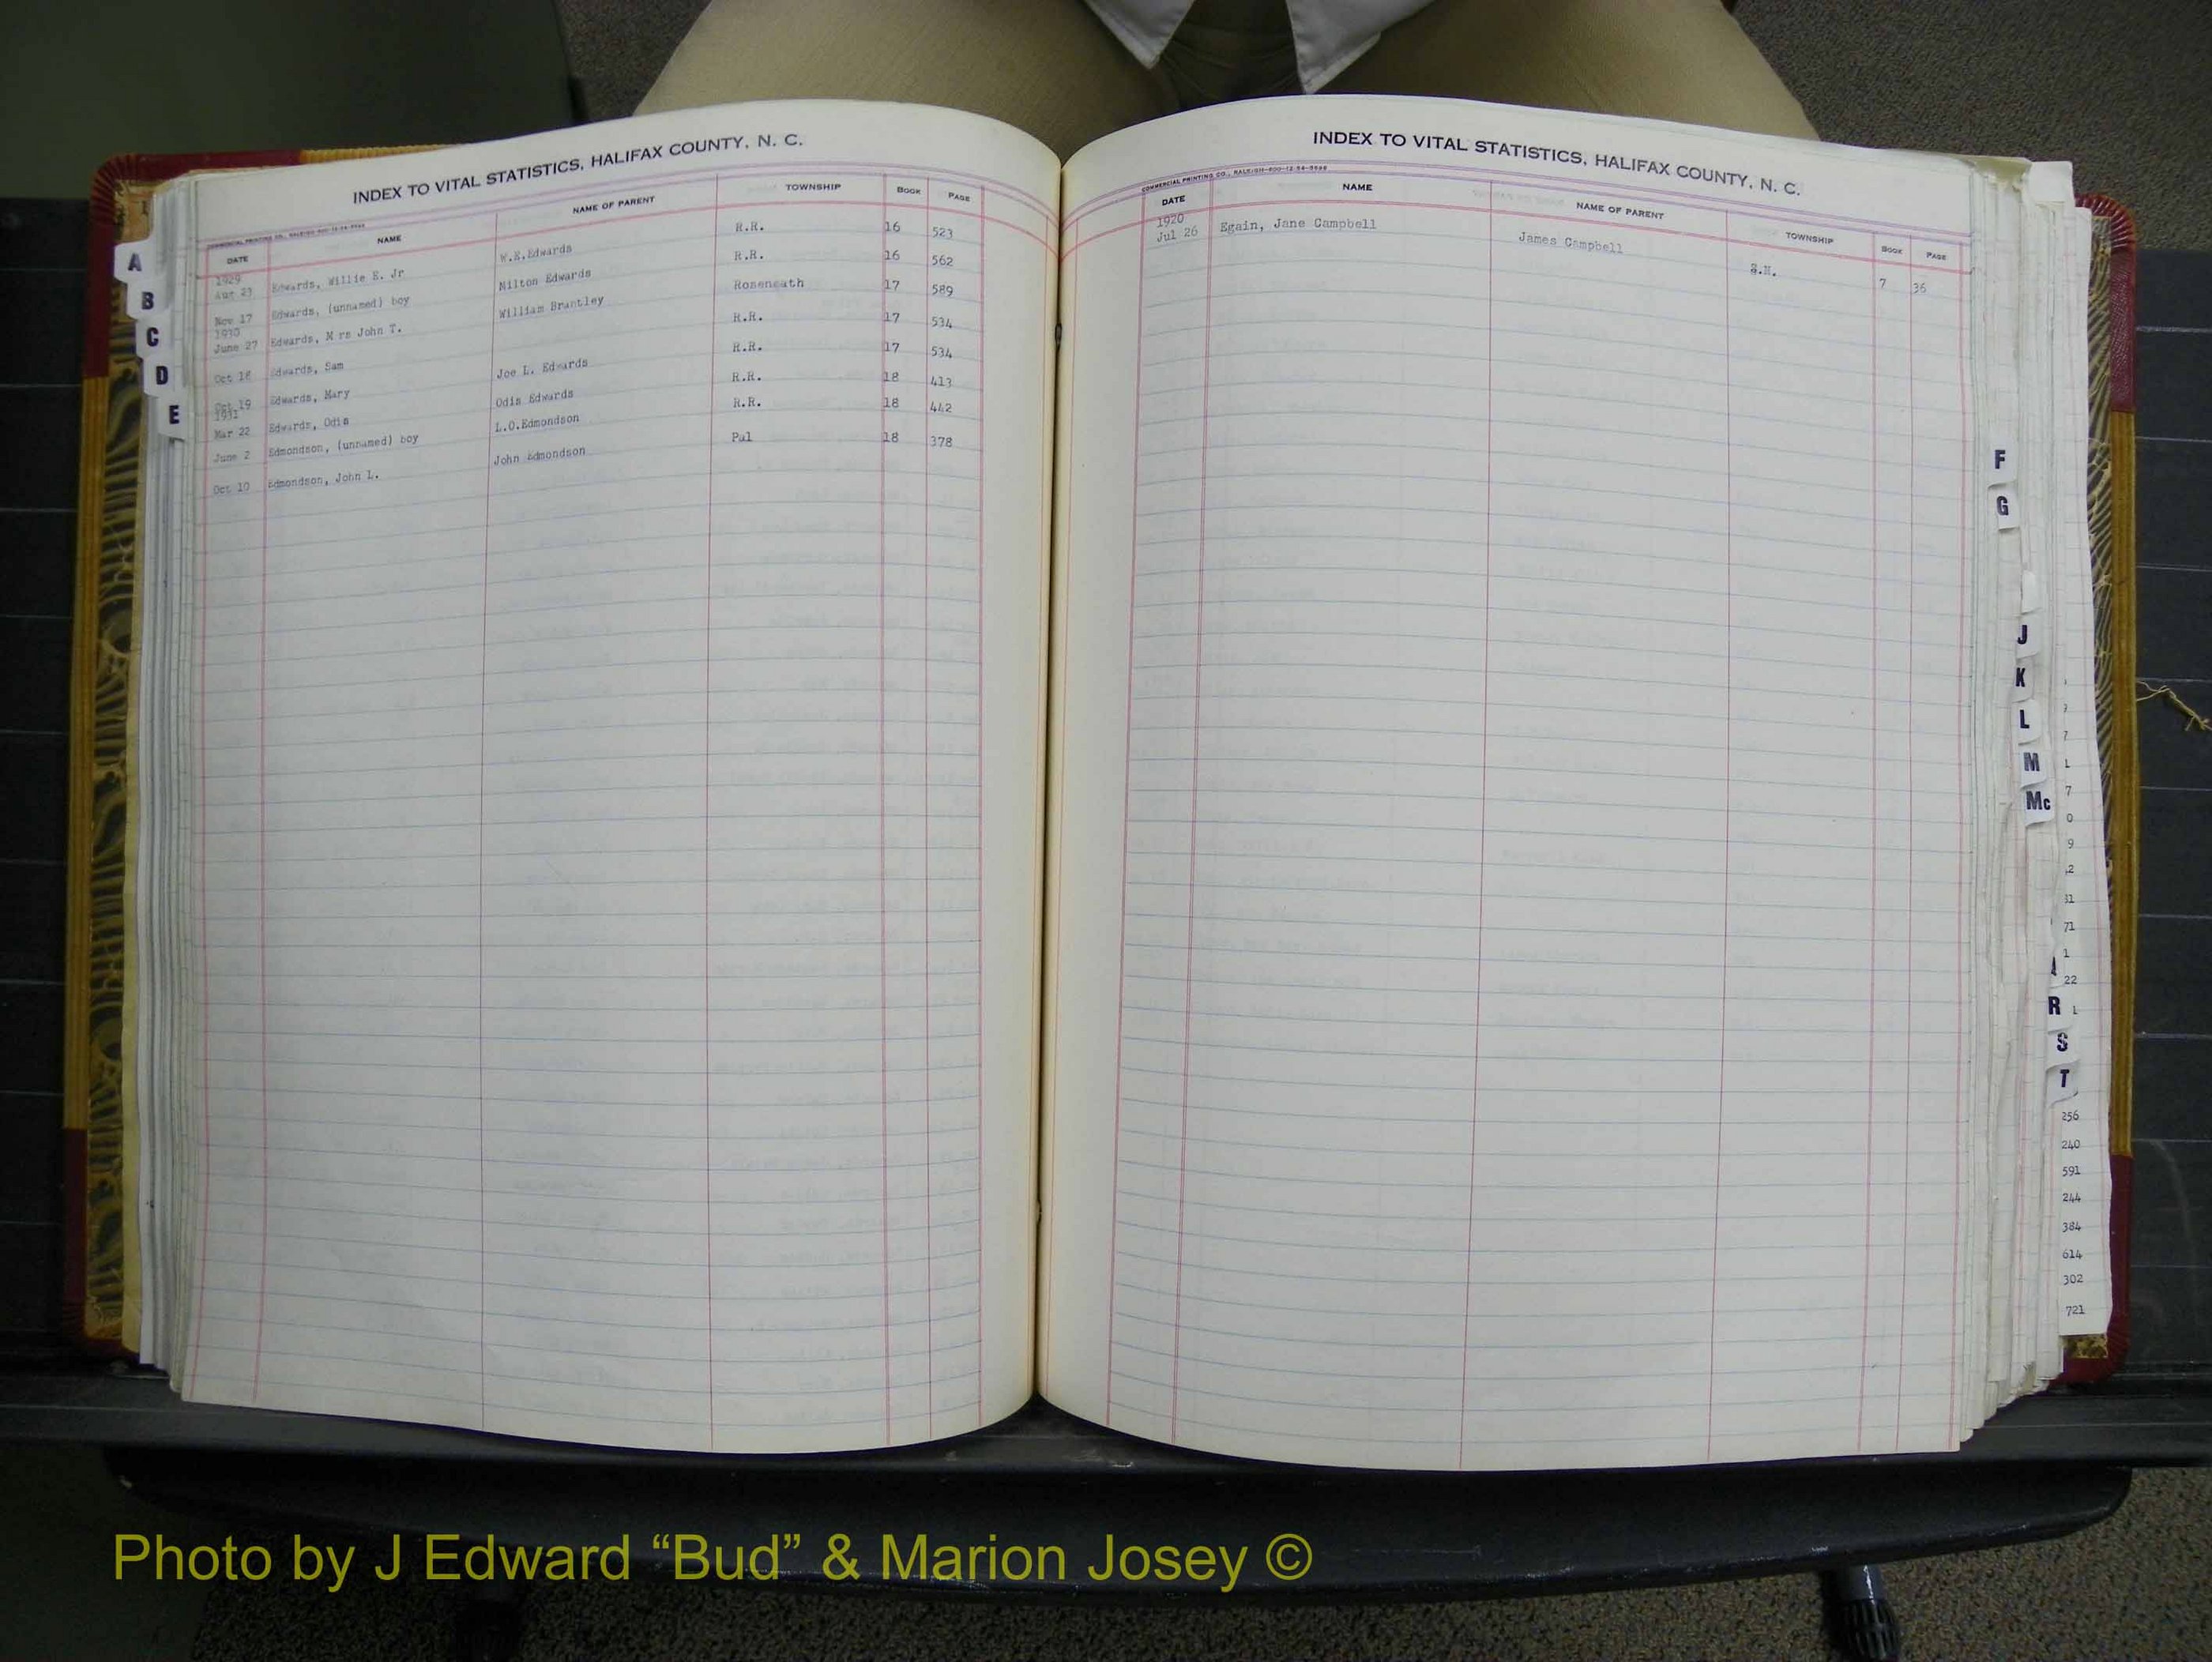 INDEX TO VITAL STATISTICS, HALIFAX COUNTY, N. C.
COMMERCIAL PRINTING CO., RALEIGH
DATE NAME NAME OF PARENT TOWNSHIP BOOK PAGE
1929
Aug 23 Edwards, Willie E. Jr W.E.Edwards R.R. 16 523
Nov 17 Edwards, (unnamed) boy Milton Edwards R.R. 16 562
1930
June 27 Edwards, M rs John T. William Brantley Roseneath 17 589
Oct 18 Edwards, Sam R.R. 17 534
Oct 19 Edwards, Mary Joe L. Edwards R.R. 17 534
1931
Mar 22 Edwards, Odis Odis Edwards R.R. 18 413
June 2 Edmondson, (unnamed) boy L.O.Edmondson R.R. 18 442
Oct 10 Edmondson, John L. John Edmondson Pal 18 378
A
B
C
D
E
INDEX TO VITAL STATISTICS, HALIFAX COUNTY, N. C.
COMMERCIAL PRINTING CO., RALEIGH
DATE NAME NAME OF PARENT TOWNSHIP BOOK PAGE
1920
Jul 26 Egain, Jane Campbell James Campbell S.N. 7 36
F
G
J
K
L
M
Mc
R
S
T
256
240
591
244
384
614
302
721
Photo by J Edward “Bud” & Marion Josey ©